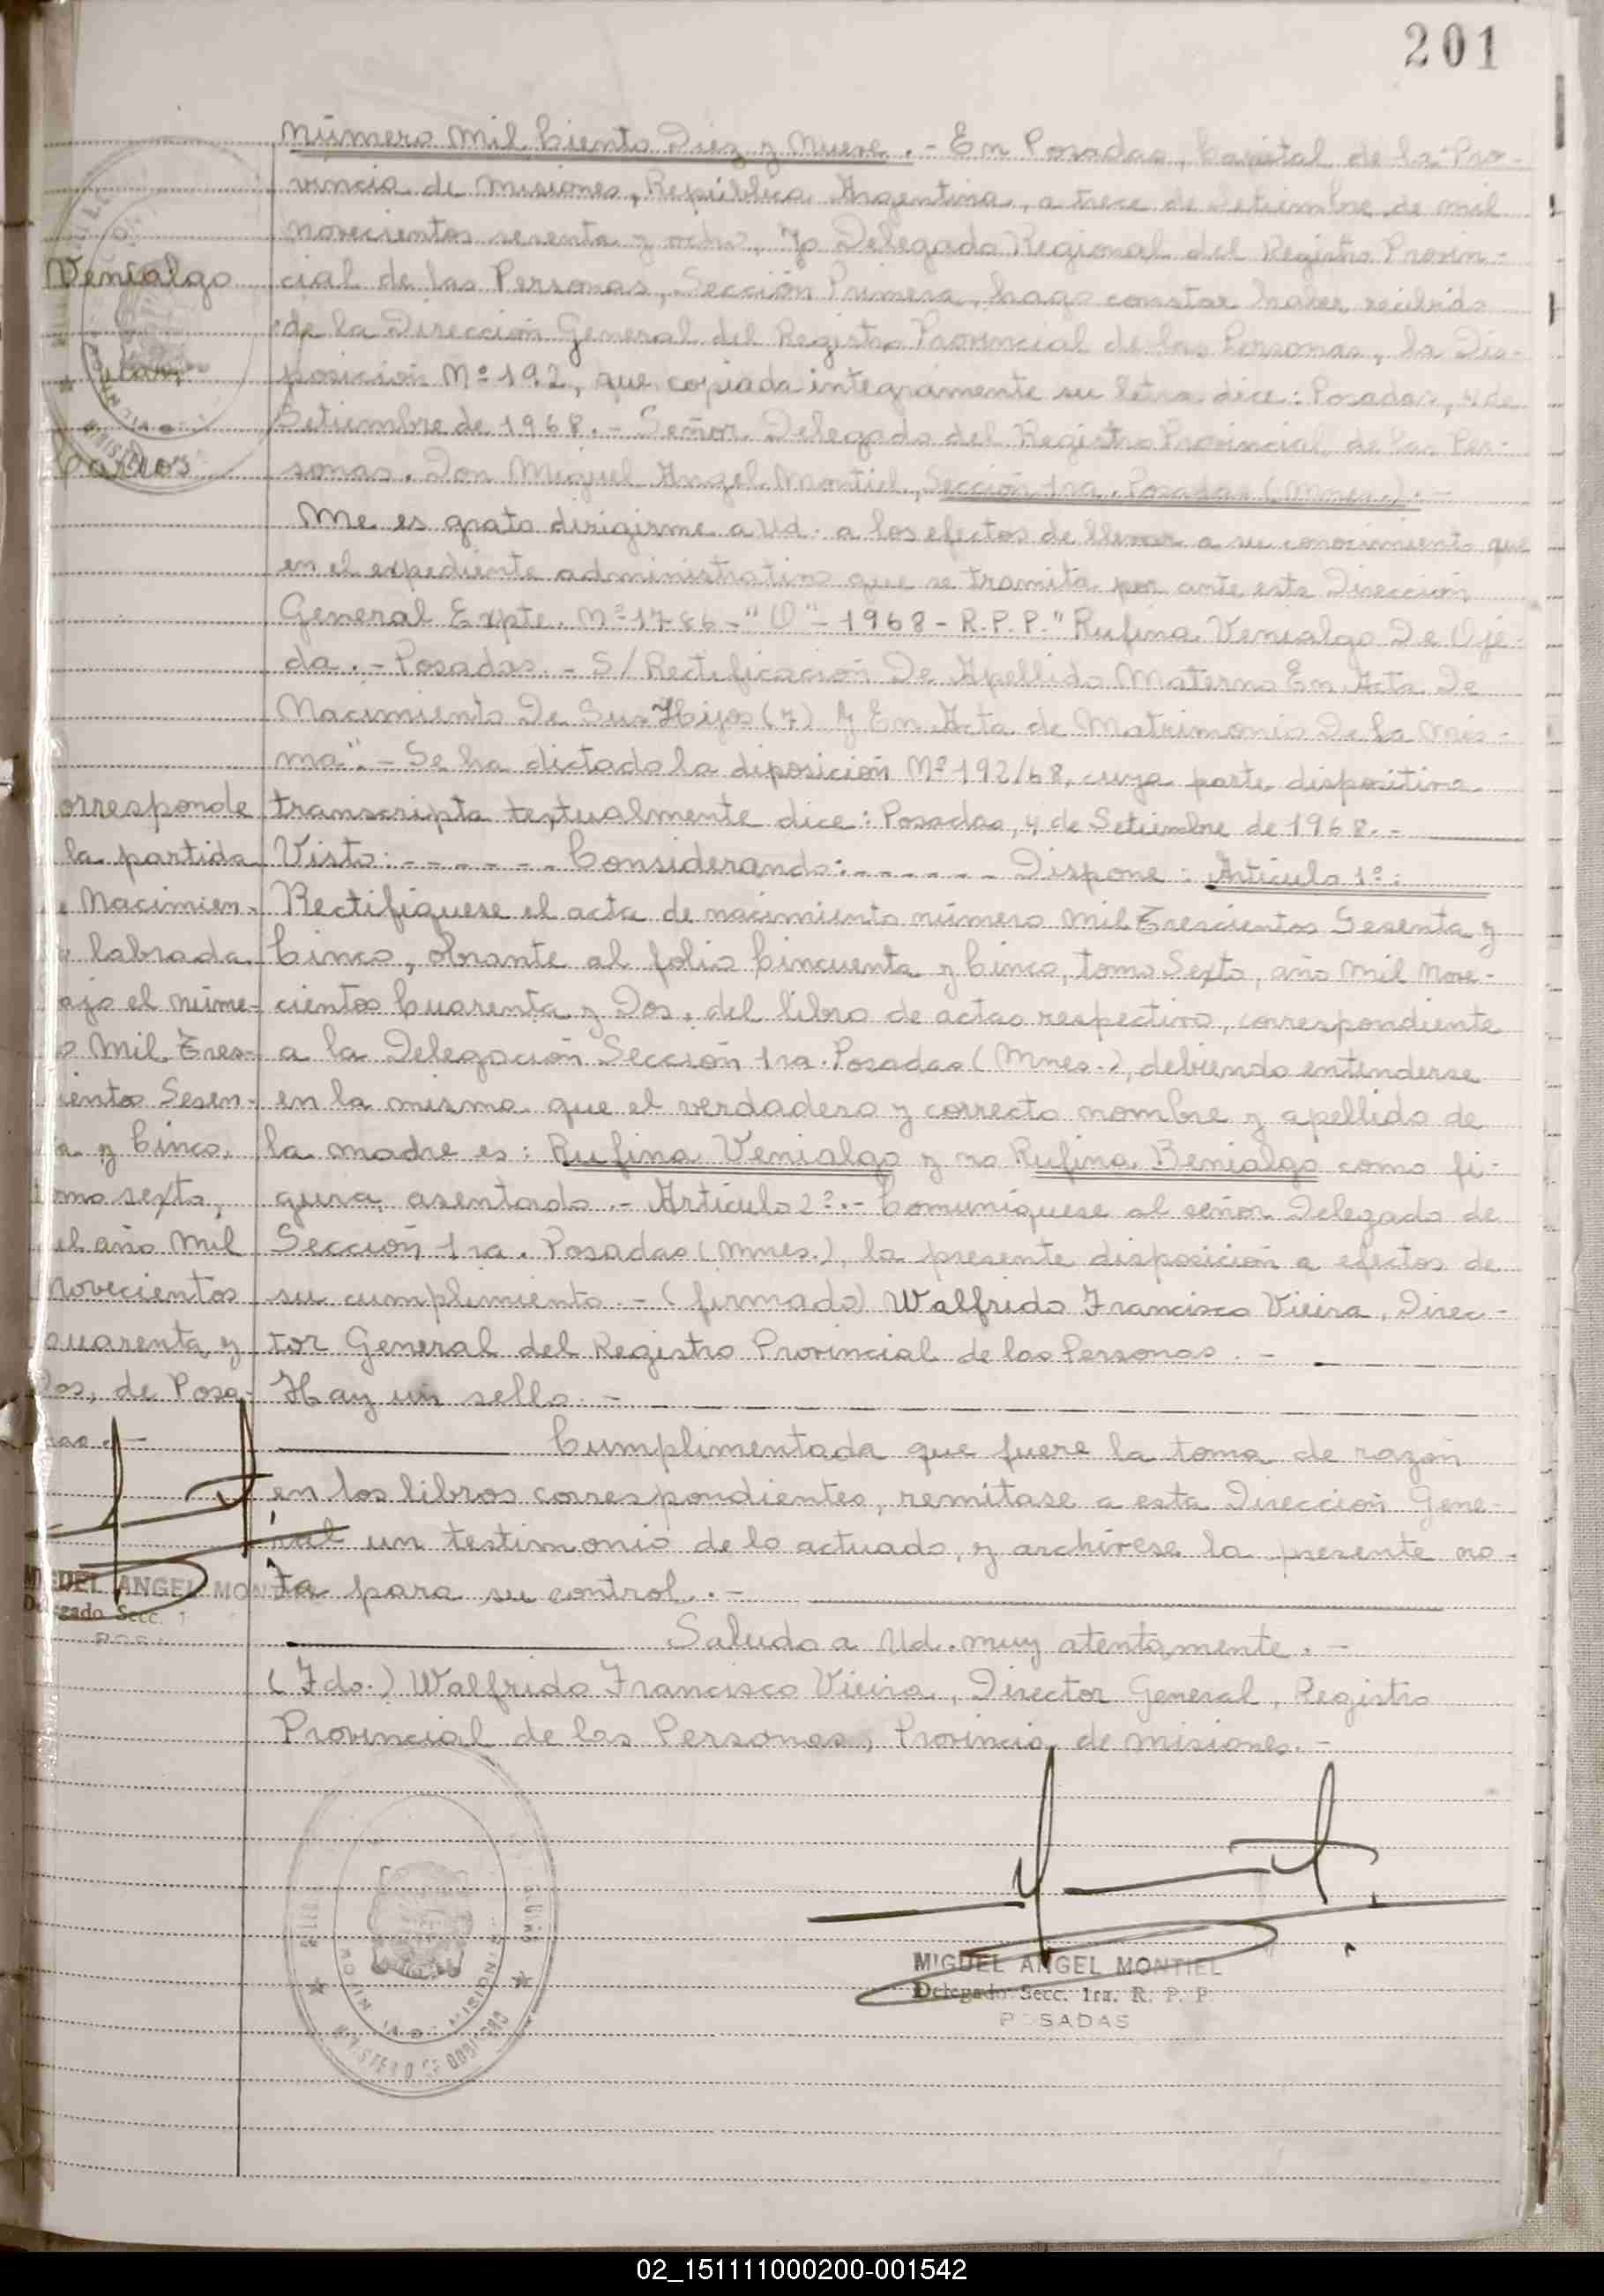 201
Número Mil Ciento Diez y Nueve.- En Posadas, Capital de la Pro-
vincia de Misiones, República Argentina, a trece de Setiembre de mil
novecientos sesenta y ocho, Yo Delegado Regional del Registro Provin-
cial de las Personas, Sección Primera, hago constar haber recibido
de la Dirección General del Registro Provincial de las Personas, la Dis-
posición Nº 192, que copiada integramente su letra dice: Posadas, 4 de
Setiembre de 1968.- Señor Delegado del Registro Provincial de las Per-
sonas. Don Miguel Angel Montiel, Sección 1ra. Posadas (Mnes.).-
Me es grato dirigirme a Ud. a los efectos de llevar a su conocimiento que
en el expediente administrativo que se tramita por ante esta Dirección
General Expte. Nº 1786-"O"-1968-R.P.P." Rufina Venialgo De Oje-
da.- Posadas.- S/Rectificación De Apellido Materno En Acta De
Nacimiento De Sus Hijos (7) Y En Acta de Matrimonio De La Mis-
ma".- Se ha dictado la diposición Nº 192/68, cuya parte dispositiva
transcripta textualmente dice: Posadas, 4 de Setiembre de 1968.-
Visto:------- Considerando:------- Dispone: Artículo 1º:
Rectifíquese el acta de nacimiento número Mil Trescientos Sesenta y
Cinco, obrante al folio Cincuenta y Cinco, tomo Sexto, año Mil Nove-
cientos Cuarenta y Dos, del libro de actas respectivo, correspondiente
a la Delegación Sección 1ra. Posadas (Mnes.), debiendo entenderse
en la misma que el verdadero y correcto nombre y apellido de
la madre es: Rufina Venialgo y no Rufina Benialgo como fi-
gura asentado.- Artículo 2º.- Comuníquese al señor Delegado de
Sección 1ra. Posadas (Mnes.), la presente disposición a efectos de
su cumplimiento.- (firmado) Walfrido Francisco Vieira, Direc-
tor General del Registro Provincial de las Personas.-
Hay un sello.-
Cumplimentada que fuere la toma de razón
en los libros correspondientes, remítase a esta Dirección Gene-
ral un testimonio de lo actuado, y archívese la presente no-
ta para su control.-
Saludo a Ud. muy atentamente.-
(Fdo.) Walfrido Francisco Vieira, Director General, Registro
Provincial de las Personas, Provincia de Misiones.-
Venialgo
Carlos
orresponde
la partida
e Nacimien-
labrada
ajo el núme-
o Mil Tres-
ientos Sesen-
ta y Cinco,
omo sexto,
el año Mil
Novecientos
Cuarenta y
Dos, de Posa-
das.-
MIGUEL ANGEL MONTIEL
Delegado Secc. 1
MIGUEL ANGEL MONTIEL
Delegado Secc. 1ra. R. P. P.
POSADAS
02_151111000200-001542